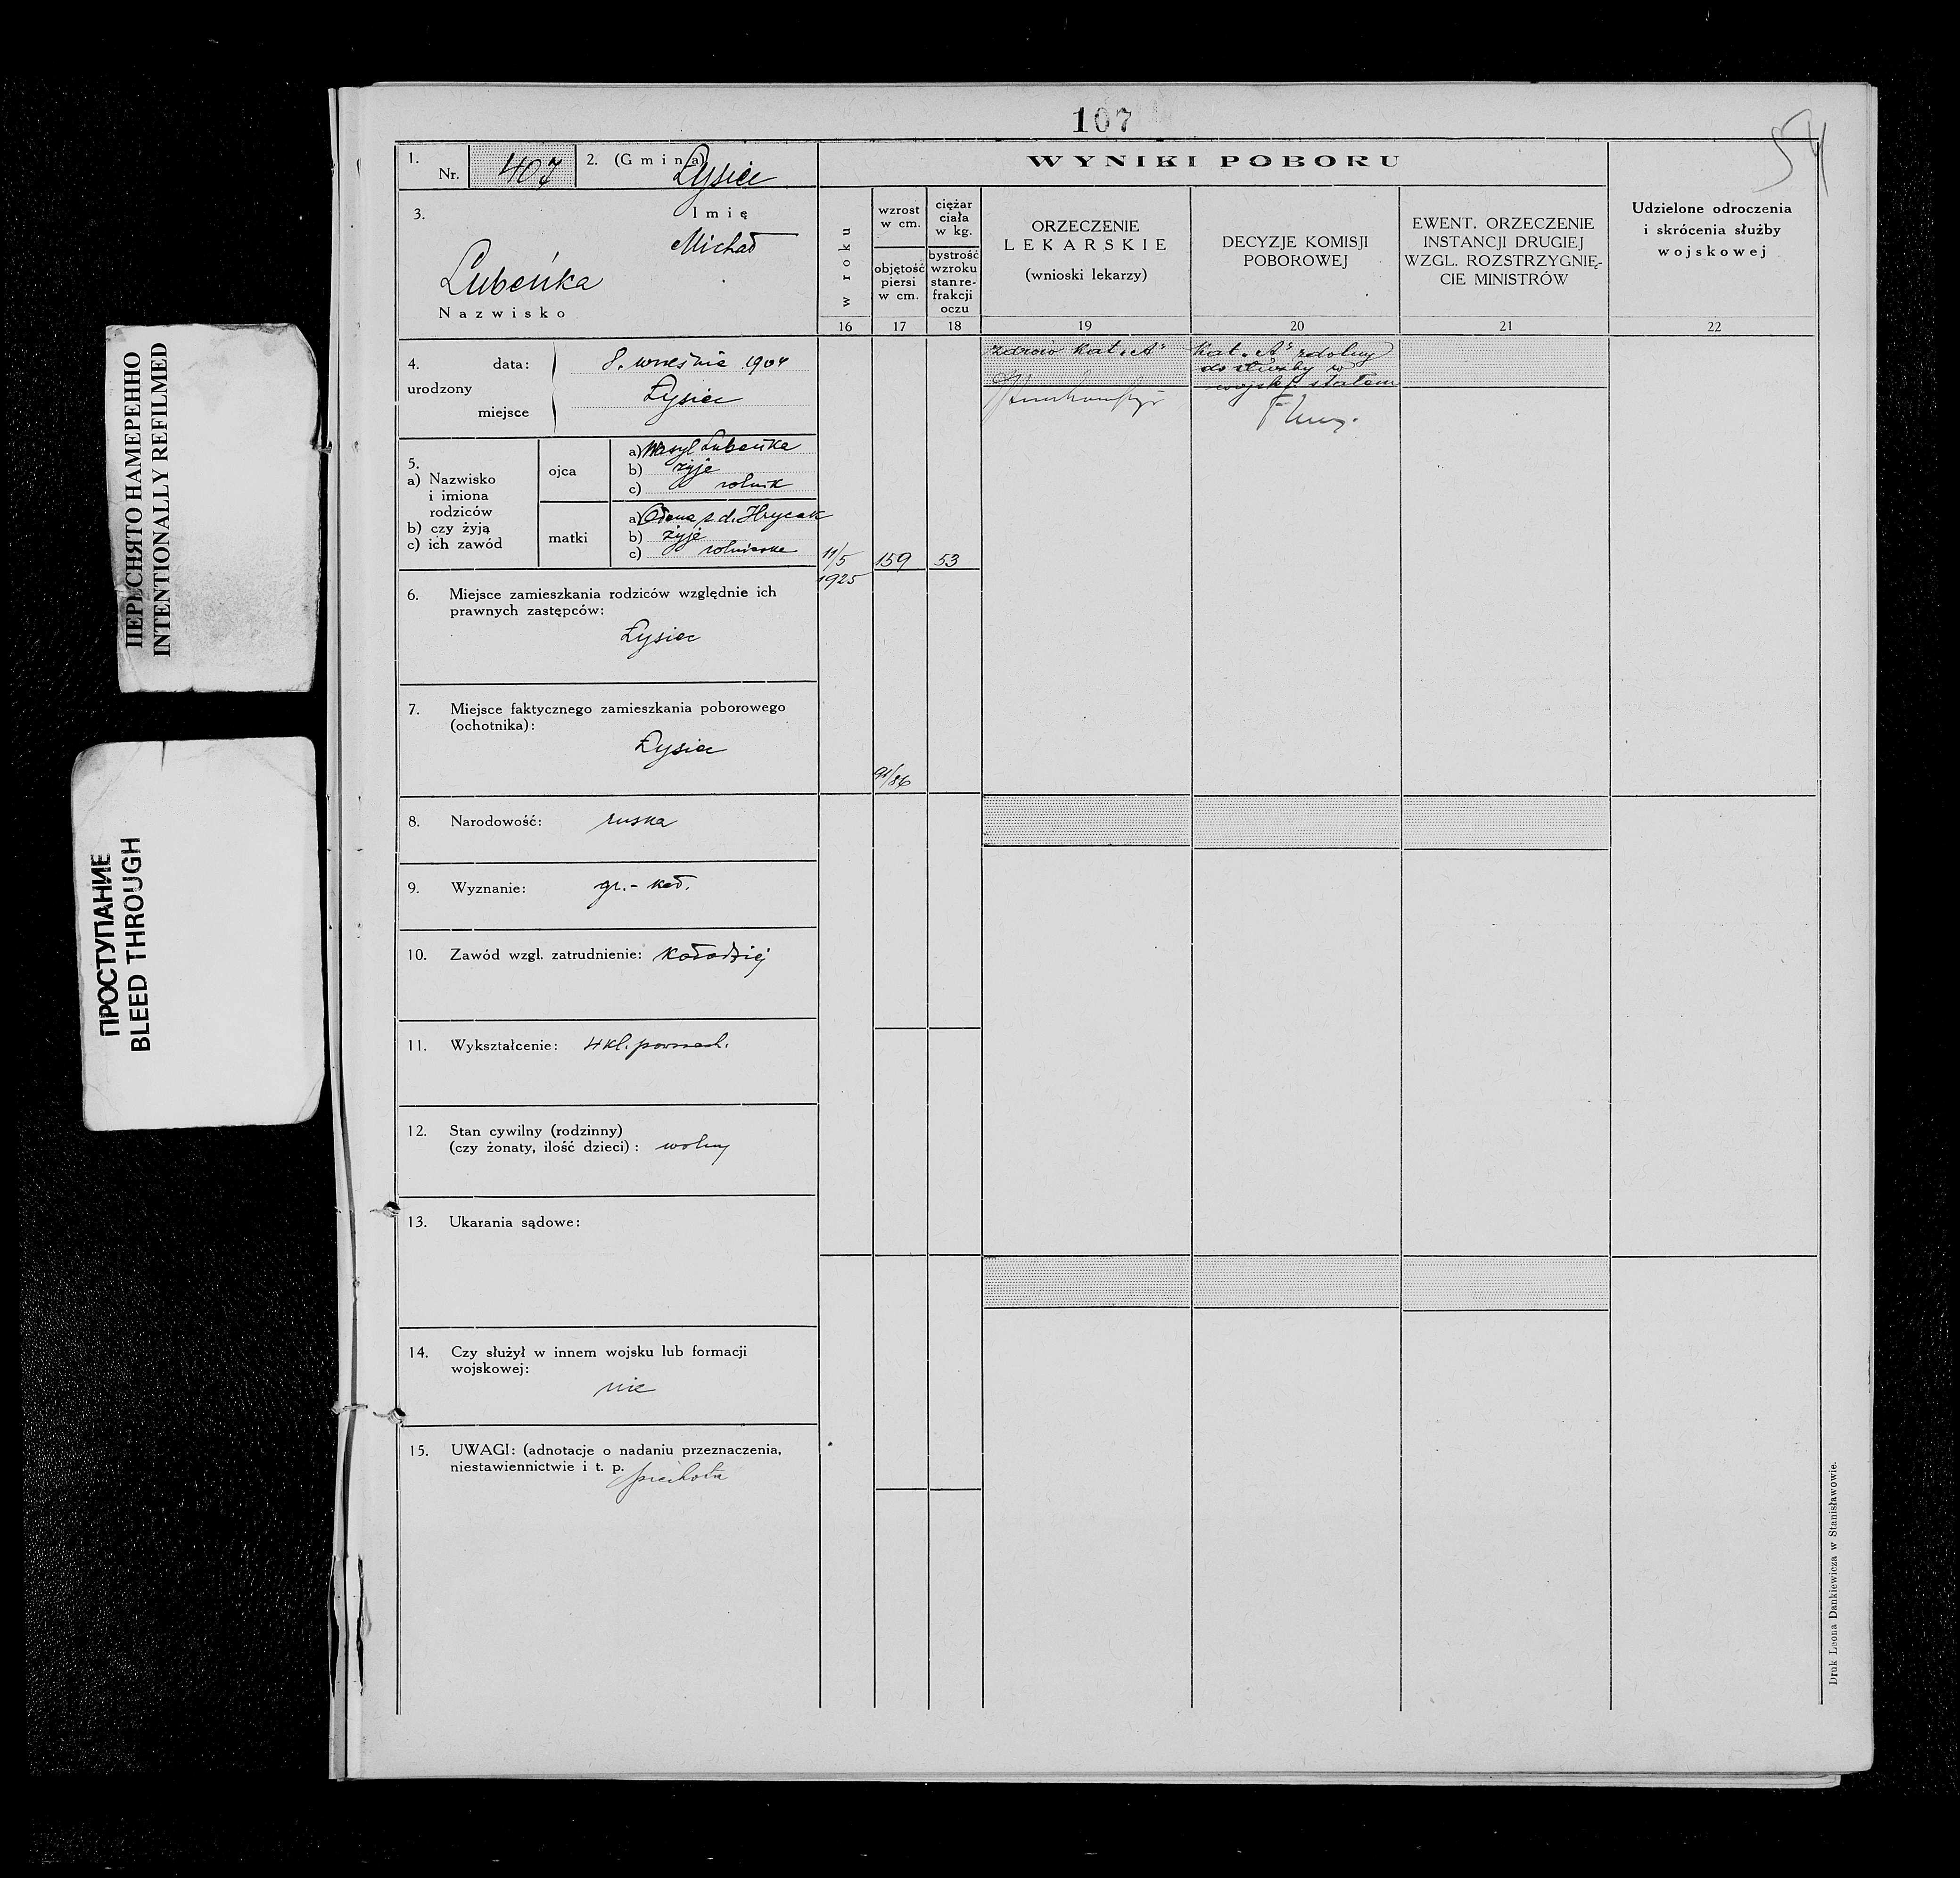 107
54
1.
Nr. 407
2. (Gmina) Łysiec
WYNIKI POBORU
3.
Imię
Michał
Lubeńka
Nazwisko
w roku
wzrost
w cm.
objętość
piersi
w cm.
ciężar
ciała
w kg.
bystrość
wzroku
stan re-
frakcji
oczu
ORZECZENIE
LEKARSKIE
(wnioski lekarzy)
DECYZJE KOMISJI
POBOROWEJ
EWENT. ORZECZENIE
INSTANCJI DRUGIEJ
WZGL. ROZSTRZYGNIĘ-
CIE MINISTRÓW
Udzielone odroczenia
i skrócenia służby
wojskowej
16 17 18 19 20 21 22
4.
urodzony
data: 8. września 1904
miejsce Łysiec
zdrów kat. „A"
kat. „A" zdolny
do służby w
wojsku stałem
5.
a) Nazwisko
i imiona
rodziców
b) czy żyją
c) ich zawód
ojca
a) Wasyl Lubeńka
b) żyje
c) rolnik
matki
a) Ołena z d. Hrycak
b) żyje
c) rolniczka
11/5
1925
159
53
91/86
6. Miejsce zamieszkania rodziców względnie ich
prawnych zastępców:
Łysiec
7. Miejsce faktycznego zamieszkania poborowego
(ochotnika):
Łysiec
8. Narodowość: ruska
9. Wyznanie: gr.-kat.
10. Zawód wzgl. zatrudnienie: kołodziej
11. Wykształcenie: 4 kl. powszech.
12. Stan cywilny (rodzinny)
(czy żonaty, ilość dzieci): wolny
13. Ukarania sądowe:
14. Czy służył w innem wojsku lub formacji
wojskowej:
nie
15. UWAGI: (adnotacje o nadaniu przeznaczenia,
niestawiennictwie i t. p.
piechota
Druk Leona Dankiewicza w Stanisławowie.
ПЕРЕСНЯТО НАМЕРЕННО
INTENTIONALLY REFILMED
ПРОСТУПАНИЕ
BLEED THROUGH